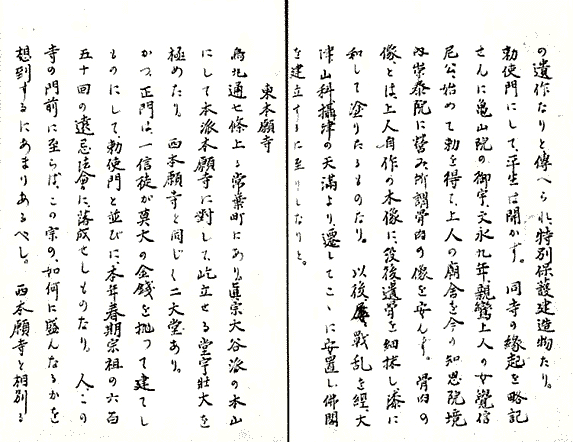 の遺作なりと傳へられ、特別保護建造物たり。
勅使門にして平生は開かず。 同寺の縁起を略記
せんに亀山院の御宇、文永九年親鸞上人の女覺信
尼公始めて勅を得て、上人の廟舍を今の知恩院境
内崇泰院に営み、所謂骨肉の像を安んず。骨肉の
像とは、上人自作の木像に、没後遺骨を細抹し漆に
和して塗りたるものなり。 以後屢戰乱を經、大
津山科攝津の天満より、遷してこゝに安置し、佛閣
を建立するに至りしなりと。
東本願寺
烏丸通七條上る常葉町にあり。眞宗大谷派の本山
にして本派本願寺に對して屹立せる堂宇壮大を
極めたり。 西本願寺と同じく二大堂あり。
かつ正門は、一信徒が莫大の金錢を抛つて建てし
ものにして、勅使門と並びに、本年春期宗祖の六百
五十回の遠忌法會に落成せしものなり。 人この
寺の門前に至らば、この宗の、如何に盛んなるかを
想到するにあまりあるべし。 西本願寺と相別る